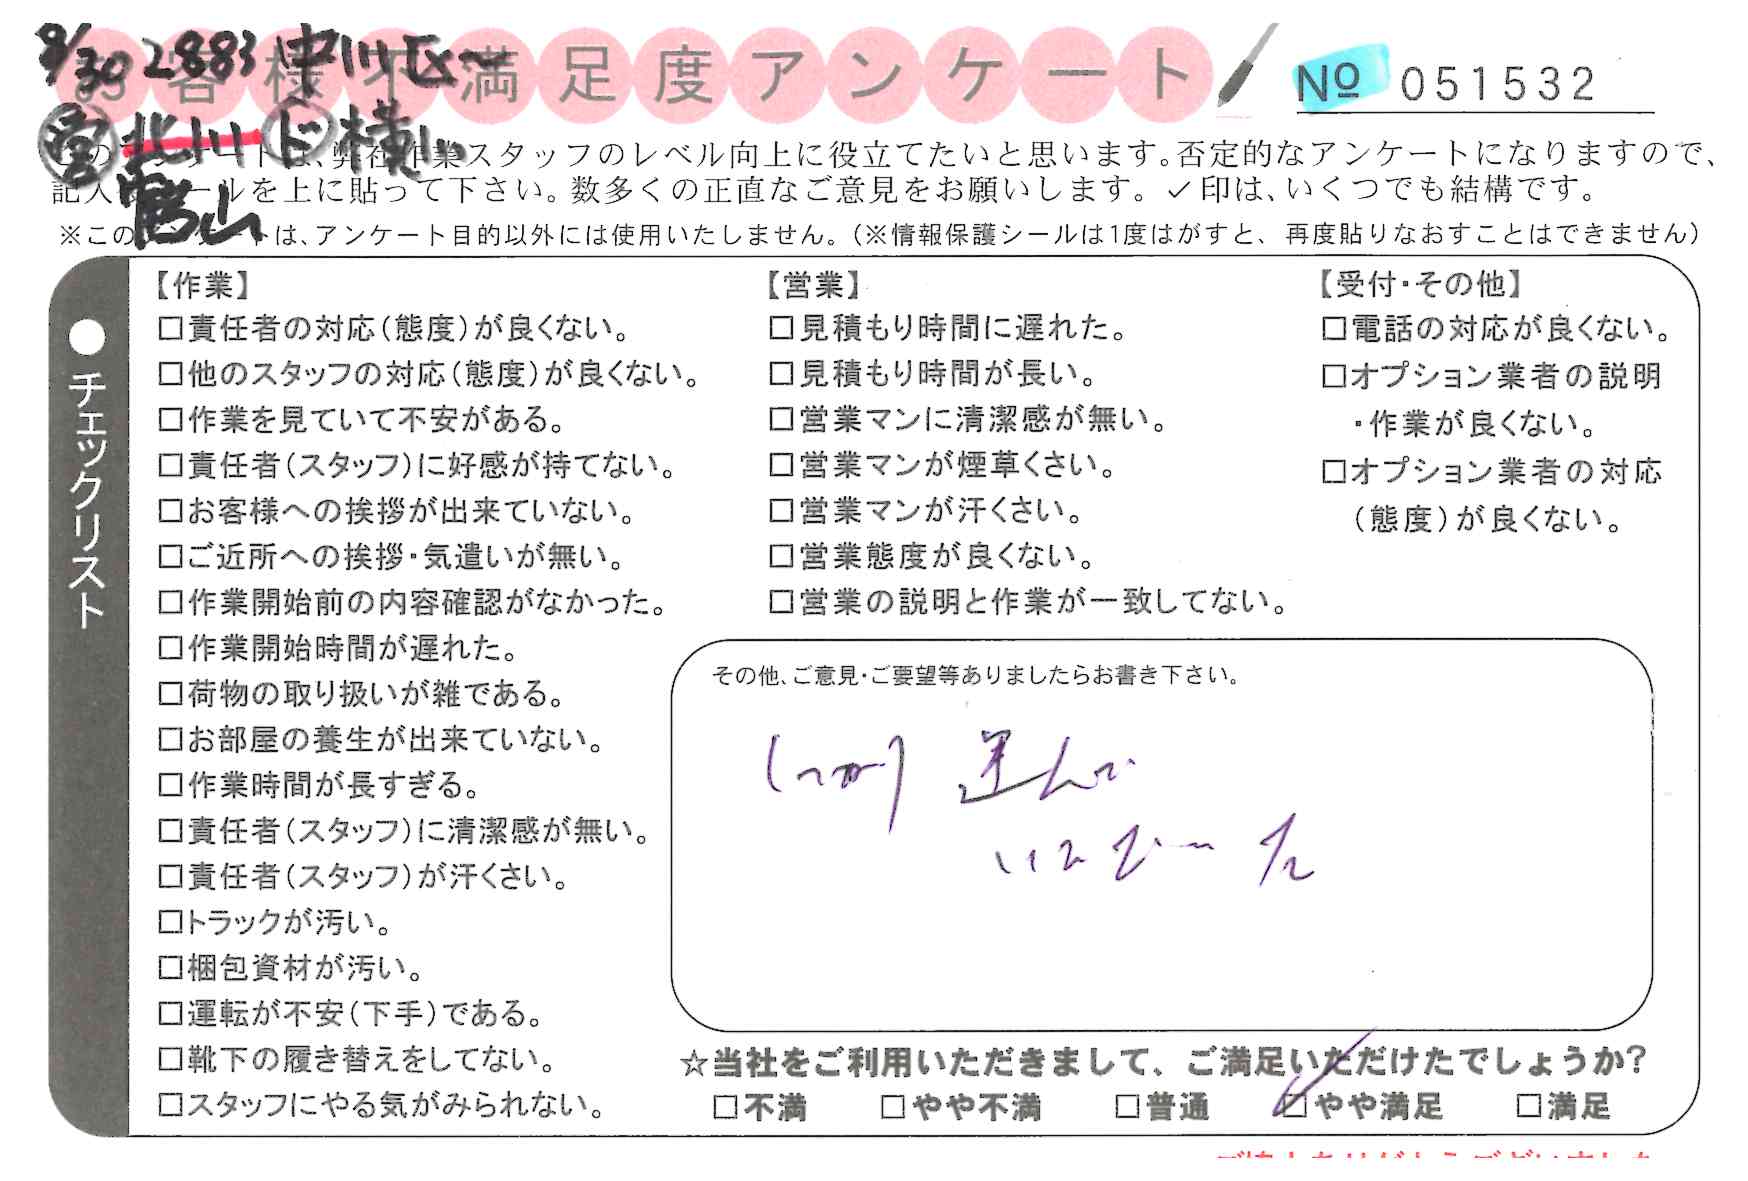 9/30 2883 中川区〜
お客様不満足度アンケート
№ 051532
営 北川 ド 横
このアンケートは、弊社作業スタッフのレベル向上に役立てたいと思います。否定的なアンケートになりますので、
記入後シールを上に貼って下さい。数多くの正直なご意見をお願いします。✓印は、いくつでも結構です。
※このアンケートは、アンケート目的以外には使用いたしません。(※情報保護シールは1度はがすと、再度貼りなおすことはできません)
●チェックリスト
【作業】
□責任者の対応(態度)が良くない。
□他のスタッフの対応(態度)が良くない。
□作業を見ていて不安がある。
□責任者(スタッフ)に好感が持てない。
□お客様への挨拶が出来ていない。
□ご近所への挨拶・気遣いが無い。
□作業開始前の内容確認がなかった。
□作業開始時間が遅れた。
□荷物の取り扱いが雑である。
□お部屋の養生が出来ていない。
□作業時間が長すぎる。
□責任者(スタッフ)に清潔感が無い。
□責任者(スタッフ)が汗くさい。
□トラックが汚い。
□梱包資材が汚い。
□運転が不安(下手)である。
□靴下の履き替えをしてない。
□スタッフにやる気がみられない。
【営業】
□見積もり時間に遅れた。
□見積もり時間が長い。
□営業マンに清潔感が無い。
□営業マンが煙草くさい。
□営業マンが汗くさい。
□営業態度が良くない。
□営業の説明と作業が一致してない。
【受付・その他】
□電話の対応が良くない。
□オプション業者の説明
・作業が良くない。
□オプション業者の対応
(態度)が良くない。
その他、ご意見・ご要望等ありましたらお書き下さい。
しっかり 運んで
いただいた
☆当社をご利用いただきまして、ご満足いただけたでしょうか?
□不満 □やや不満 □普通 ☑やや満足 □満足